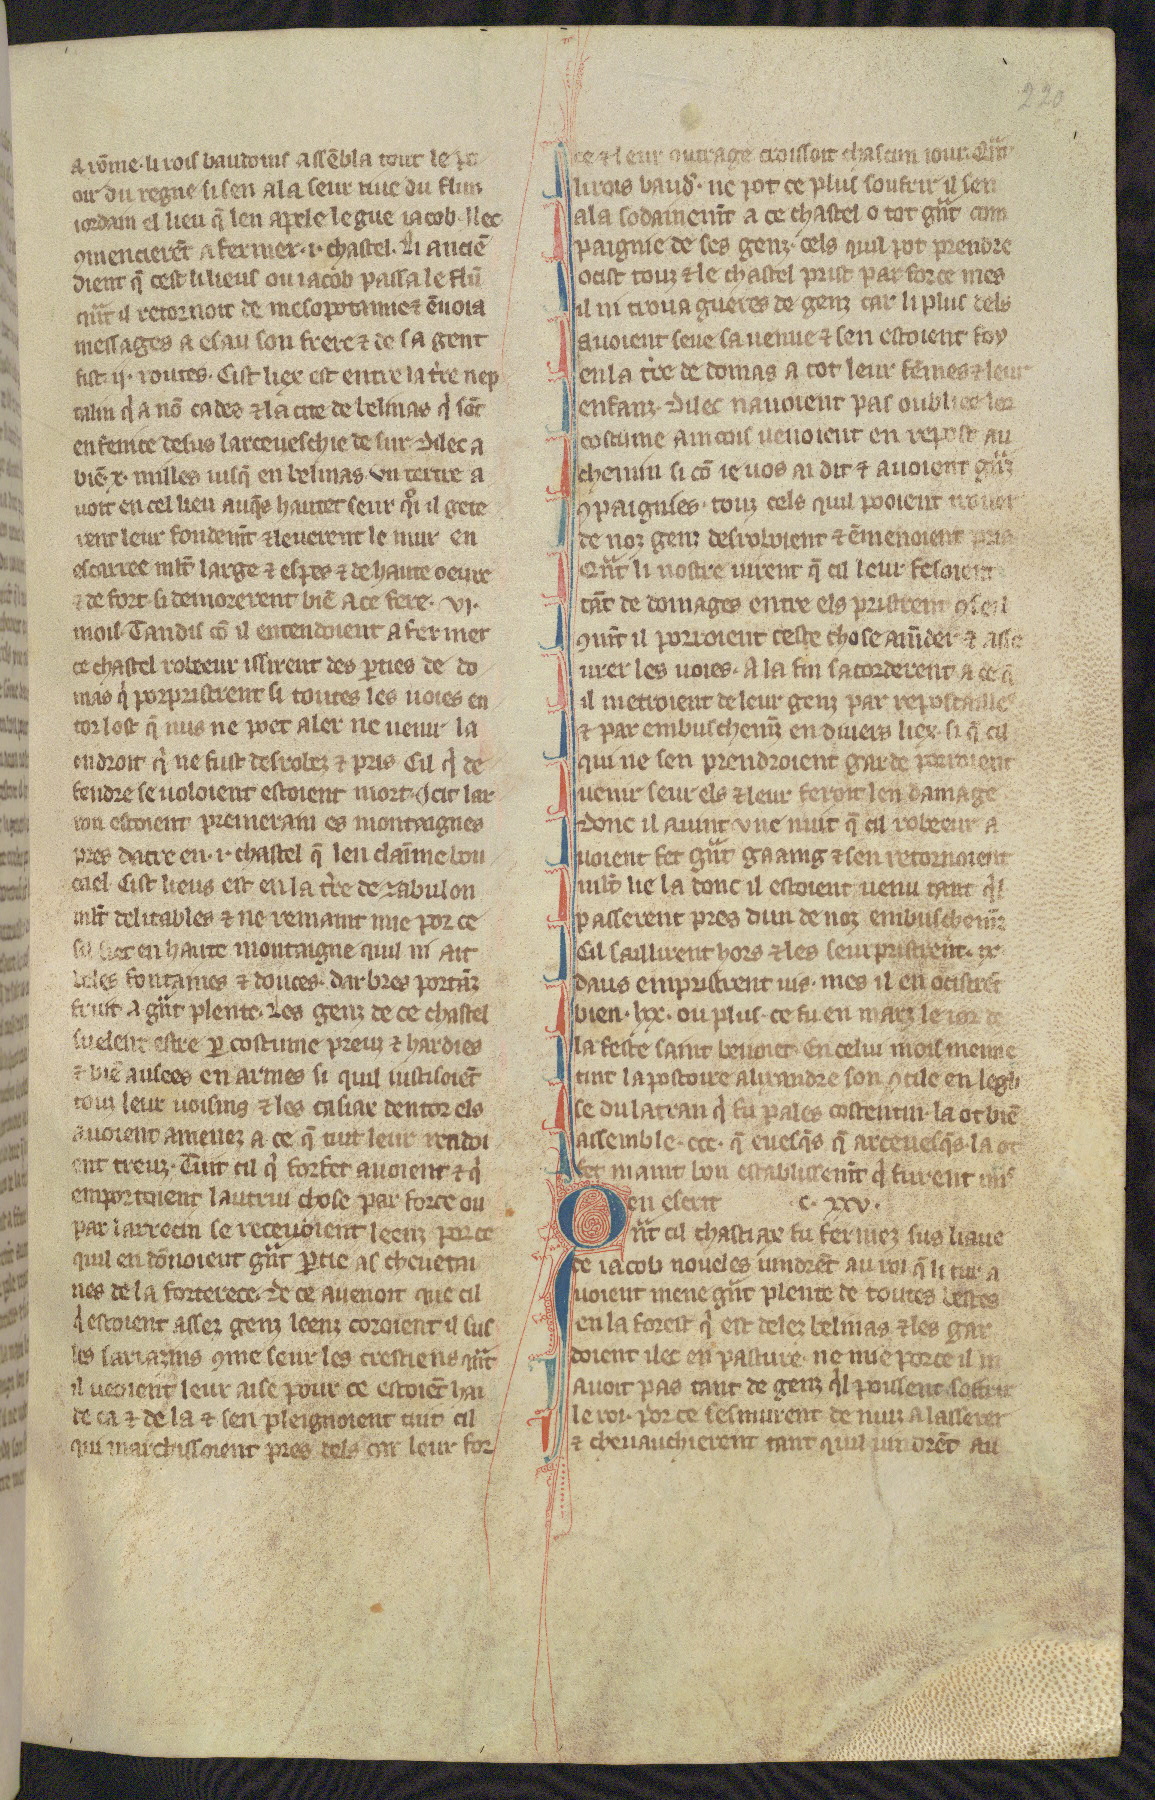 220
a rõme. li rois baudoins assẽbla tout le po
oir du regne si sen ala seur riue du flun
iordain el lieu q̃ len apele le gue iacob. Ilec
ꝯmencierẽt a fermer .i. chastel. Li anciẽ
dient q̃ cest li lieus ou iacob passa le flũ
qñt il retornoit de mesopotamie ⁊ ẽuoia
messages a esau son frere ⁊ de sa gent
fist .ij. routes. Cist liex est entre la t̃re nep
talin q̇ a nõ cades ⁊ la cite de belinas q̇ sõt
en fenice desus larceueschie de sur. Dilec a
biẽ .x. milles iusq̃ en belinas. vn tertre a
uoit en cel lieu auq̃s hautet seur q̇i il gete
rent leur fondemñt ⁊ leuerent le mur en
escarree ml̃t large ⁊ espes ⁊ de haute oeure
⁊ de fort. si demorerent biẽ a ce fere .vi.
mois. Tandis cõ il entendoient a fermer
ce chastel robeeur issirent des ꝑties de do
mas q̇ porpristrent si toutes les uoies en
tor lost q̃ nus ne poet aler ne uenir la
endroit q̇ ne fust desrobez ⁊ pris Cil q̇ de
fendre se uoloient estoient mort. Icit lar
ron estoient premerain es montaignes
pres dacre en .i. chastel q̃ len claĩme bou
cael Cist lieus est en la t̃re de zabulon
ml̃t delitables ⁊ ne remaint mie por ce
sil siet en haute montaigne quil ni ait
beles fontaines ⁊ douces. darbres portãz
fruit a gñt plente. Les genz de ce chastel
suelent estre ꝑ costume preuz ⁊ hardies
⁊ biẽ ausees en armes si quil iustisoiẽt
touz leur uoisins ⁊ les casiax dentor els
auoient amenez a ce q̃ tuit leur rendoi
ent treuz. Tuit cil q̇ forfet auoient ⁊ q̇
emportoient lautrui chose par force ou
par larrecin se receuoient leenz por ce
quil en dõnoient gñt ꝑtie as cheuetai
nes de la forterece. De ce auenoit que cil
q̇ estoient assez genz leenz coroient il sus
les sarrazins ꝯme seur les crestiens qñt
il ueoient leur aise pour ce estoiẽt hai
de ca ⁊ de la ⁊ sen pleignoient tuit cil
qui marchissoient pres dels car leur for
ce ⁊ leur outrage croissoit chascun iour. Qñt
li rois baud̉. ne pot ce plus soufrir il sen
ala sodainemñt a ce chastel o tot gñt com
paignie de ses genz. cels quil pot prendre
ocist touz ⁊ le chastel prist par force mes
il ni troua gueres de genz car li plus dels
auoient seue sa uenue ⁊ sen estoient foy
en la t̃re de domas a tot leur fẽmes ⁊ leur
enfanz. Dilec nauoient pas oubliee lor
costume aincois uenoient en repost au
chemin si cõ ie uos ai dit ⁊ auoient gñz
ꝯpaignies. touz cels quil pooient trouer
de noz genz desroboient ⁊ ẽmenoient pris
Qñt li nostre uirent q̃ cil leur fesoient
tãt de domages entre els pristrent ꝯseil
ꝯmñt il porroient ceste chose amẽder ⁊ asse
urer les uoies. A la fin sacorderent a ce q̃
il metroient de leur genz par repostailles
⁊ par embuschemẽz en diuers liex. si q̃ cil
qui ne sen prendroient garde porroient
uenir seur els ⁊ leur feroit len damage
Donc il auint vne nuit q̃ cil robeeur a
uoient fet gñt gaaing ⁊ sen retornoient
ml̃t lie la donc il estoient uenu tant q̇l
passerent pres dun de noz embuschemẽz
Cil saillirent hors ⁊ les seurpristrent. ix
daus empristrent uis. mes il en ocistrẽt
bien .lxx. ou plus. ce fu en marz le ior de
la feste saint benoiet. En celui mois meime
tint lapostoire alixandre son ꝯcile en legli
se du latran q̇ fu pales costentin. la ot biẽ
assemble .ccc. q̃ euesq̃s q̃ arceuesq̃s. la ot
fet maint bon establissemñt q̇ furent mis
en escrit c. xxv.
Qñt cil chastiax fu fermez sus liaue
de iacob noueles uindrẽt au roi q̃ li tur a
uoient mene gñt plente de toutes bestes
en la forest q̇ est delez belinas ⁊ les gar
doient ilec en pasture. ne mie por ce il ni
auoit pas tant de genz q̇l poissent soffrir
le roi. por ce sesmurent de nuiz a lasserer
⁊ cheuauchierent tant quil uindrẽt au